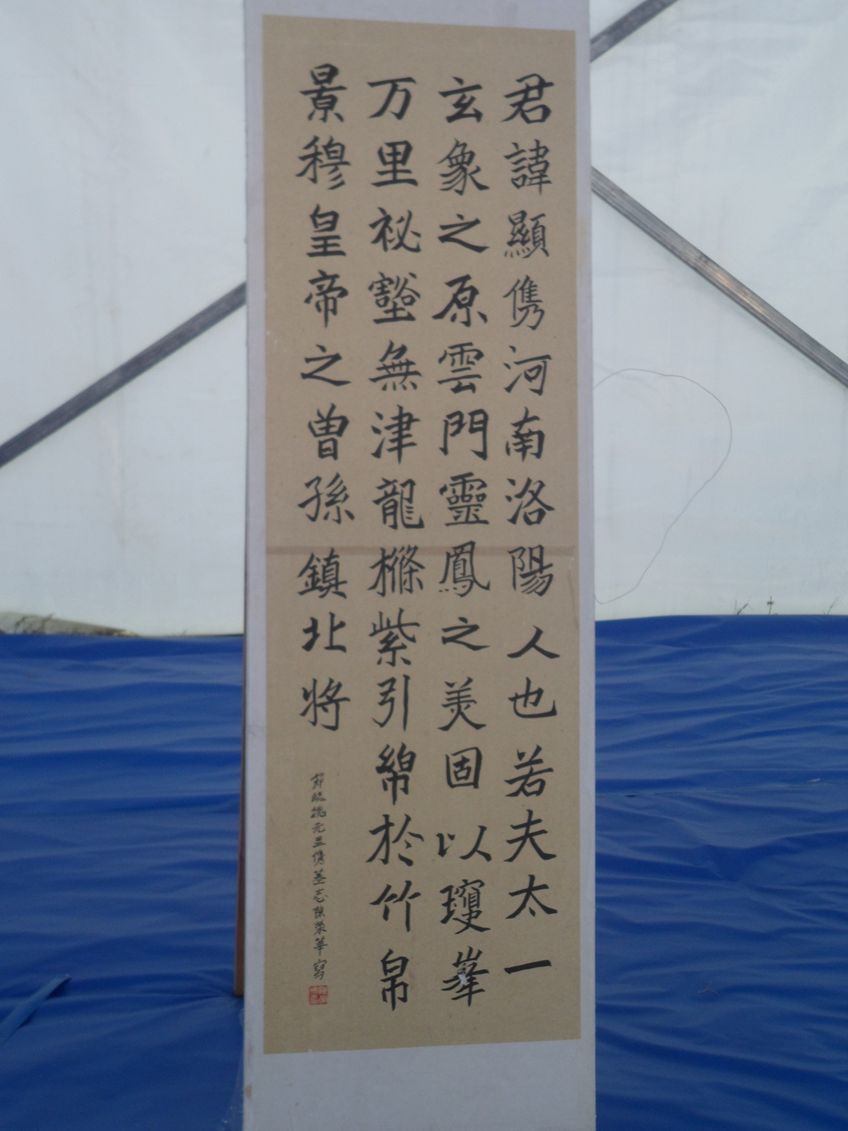 君諱顯儁河南洛陽人也若夫太一
玄象之原雲門靈鳳之美固以瓊峯
万里祕壑無津龍樤紫引綿於竹帛
景穆皇帝之曽孫鎮北将
元显儁墓志陈荣华写